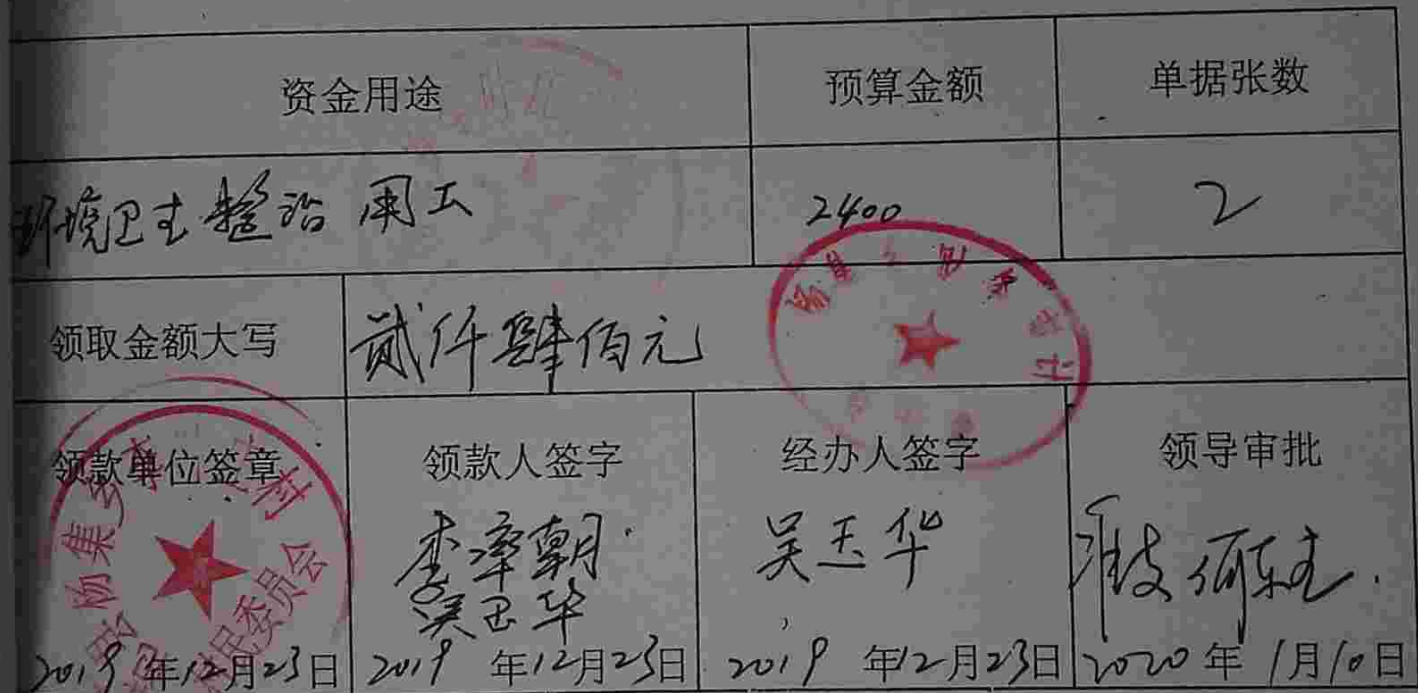 资金用途 预算金额 单据张数
环境卫生整治用工 2400 2
领取金额大写 贰仟肆佰元
领款单位签章 领款人签字 经办人签字 领导审批
李泽朝 吴玉华 准支
吴玉华
2019年12月23日 2019年12月23日 2019年12月23日 2020年1月10日
杨集乡
村
民委员会